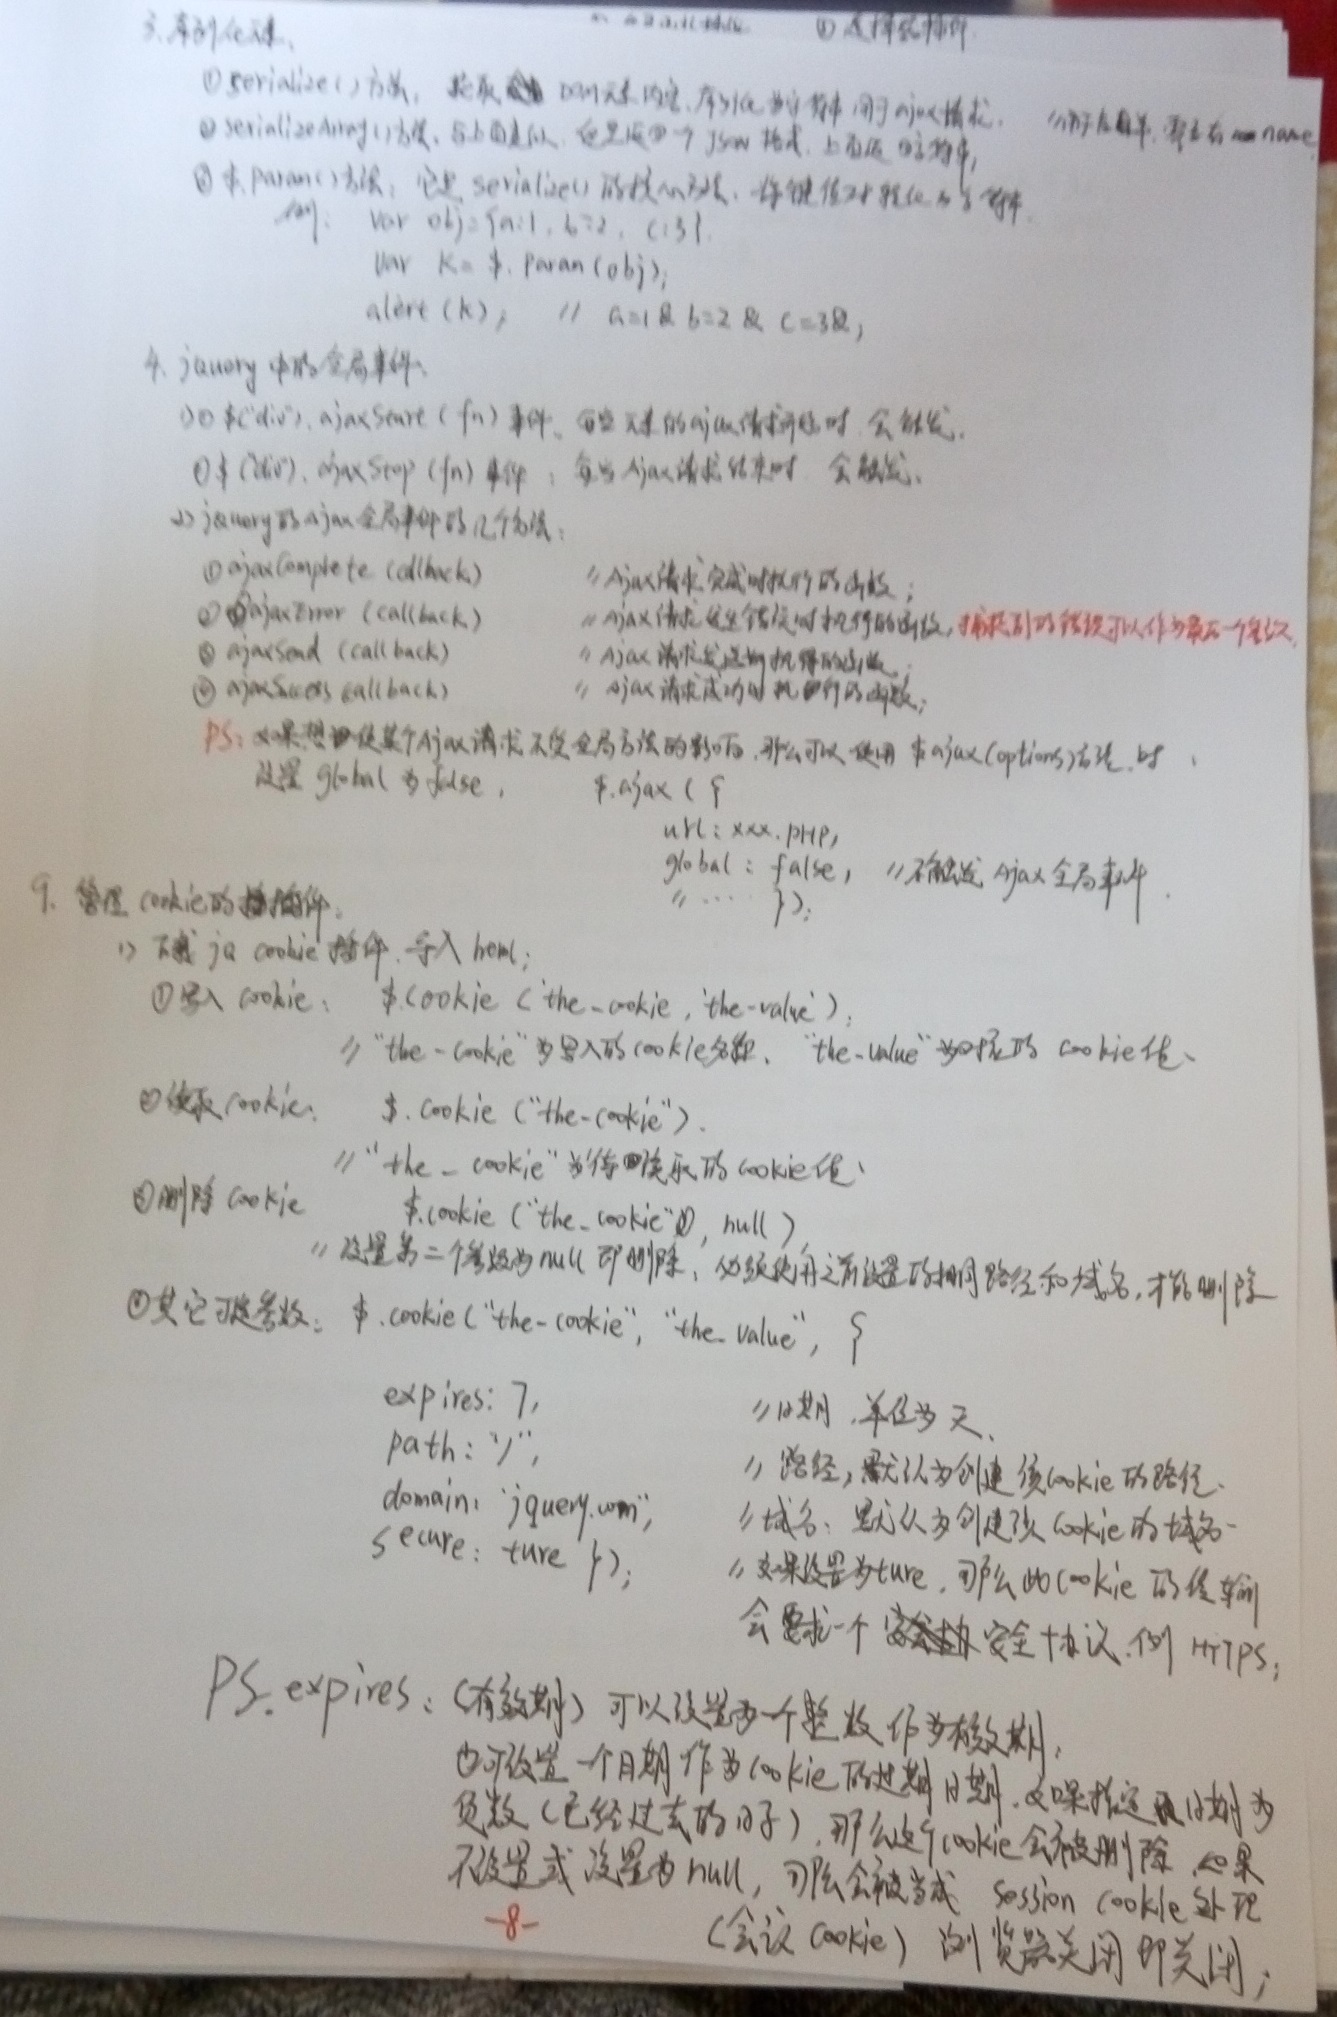 3. 序列化元素、
① serialize()方法, 获取 DOM元素内容、序列化为字符串用于ajax请求. //用于表单, 要去有 name
② serializeArray()方法、与上面类似、但是返回一个Json格式、上面返回字符串;
③ $.param()方法: 它是serialize()的核心方法、将键值对转化为字符串.
例: var obj={a:1, b:2, c:3}.
var k= $.param(obj);
alert(k); // a=1&b=2&c=3&;
4. jquery中的全局事件、
1)① $("div").ajaxStart(fn)事件、每当元素的ajax请求开始时 会触发、
② $("div").ajaxStop(fn)事件: 每当Ajax请求结束时 会触发、
2) jquery的Ajax全局事件的几个方法:
① ajaxComplete (callback) //Ajax请求完成时执行的函数;
② ajaxError (callback) //Ajax请求发生错误时执行的函数, 捕捉到的错误可以作为最后一个参数
③ ajaxSend (callback) //Ajax请求发送前执行的函数;
④ ajaxSuccess callback) //ajax请求成功时执行的函数;
PS: 如果想使某个Ajax请求不受全局方法的影响, 那么可以使用 $ajax(options)方法、时,
设置 global 为 false, $.ajax ({
url: xxx.PHP,
global: false, //不触发 Ajax 全局事件
// ···· });
9. 管理cookie的插件、
1) 下载 jq cookie 插件、导入 html;
① 写入cookie: $.cookie ('the_cookie, 'the-value');
//"the-cookie"为写入的cookie名称、"the-value"为对应的 cookie值、
② 读取cookie: $.cookie ("the-cookie").
//"the_cookie"为待读取的cookie值、
③ 删除cookie $.cookie ("the_cookie", null),
//设置第二个参数为null 即删除, 必须使用之前设置的相同路径和域名, 才能删除
④ 其它可选参数: $.cookie("the-cookie", "the_value", {
expires: 7, //日期, 单位为天、
path: "/", //路径, 默认为创建该cookie的路径、
domain: "jquery.com", //域名: 默认为创建该cookie的域名-
secure: ture }); //如果设置为ture, 那么此cookie的传输
会要求一个 安全协议、例 HTTPS;
PS. expires: (有效期) 可以设置为一个整数作为有效期;
也可设置一个日期作为cookie的过期日期, 如果指定日期为
负数(已经过去的日子), 那么这个cookie会被删除, 如果
不设置或设置为null, 那么会被当成 session cookie处理
(会议cookie) 浏览器关闭即关闭;
-8-